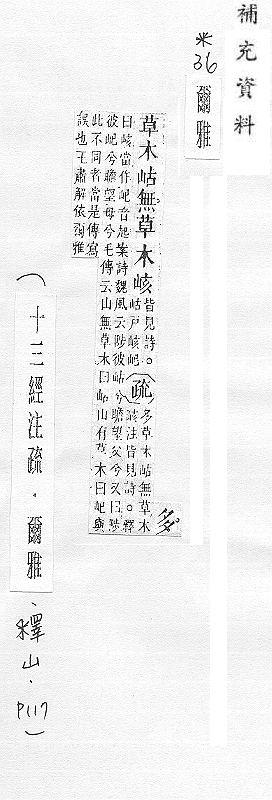 補充資料
※36 爾雅
多
草木岵無草木峐 皆見詩。
岵戶峐屺
疏 多草木岵無草木
峐注皆見詩。釋
曰峐當作屺音起案詩魏風云陟彼岵兮瞻望父兮又曰陟
彼屺兮瞻望母兮毛傳云山無草木曰岵山有草木曰屺與
此不同者當是傳寫
誤也王肅解依爾雅
(十三經注疏.爾雅、釋山.P117)